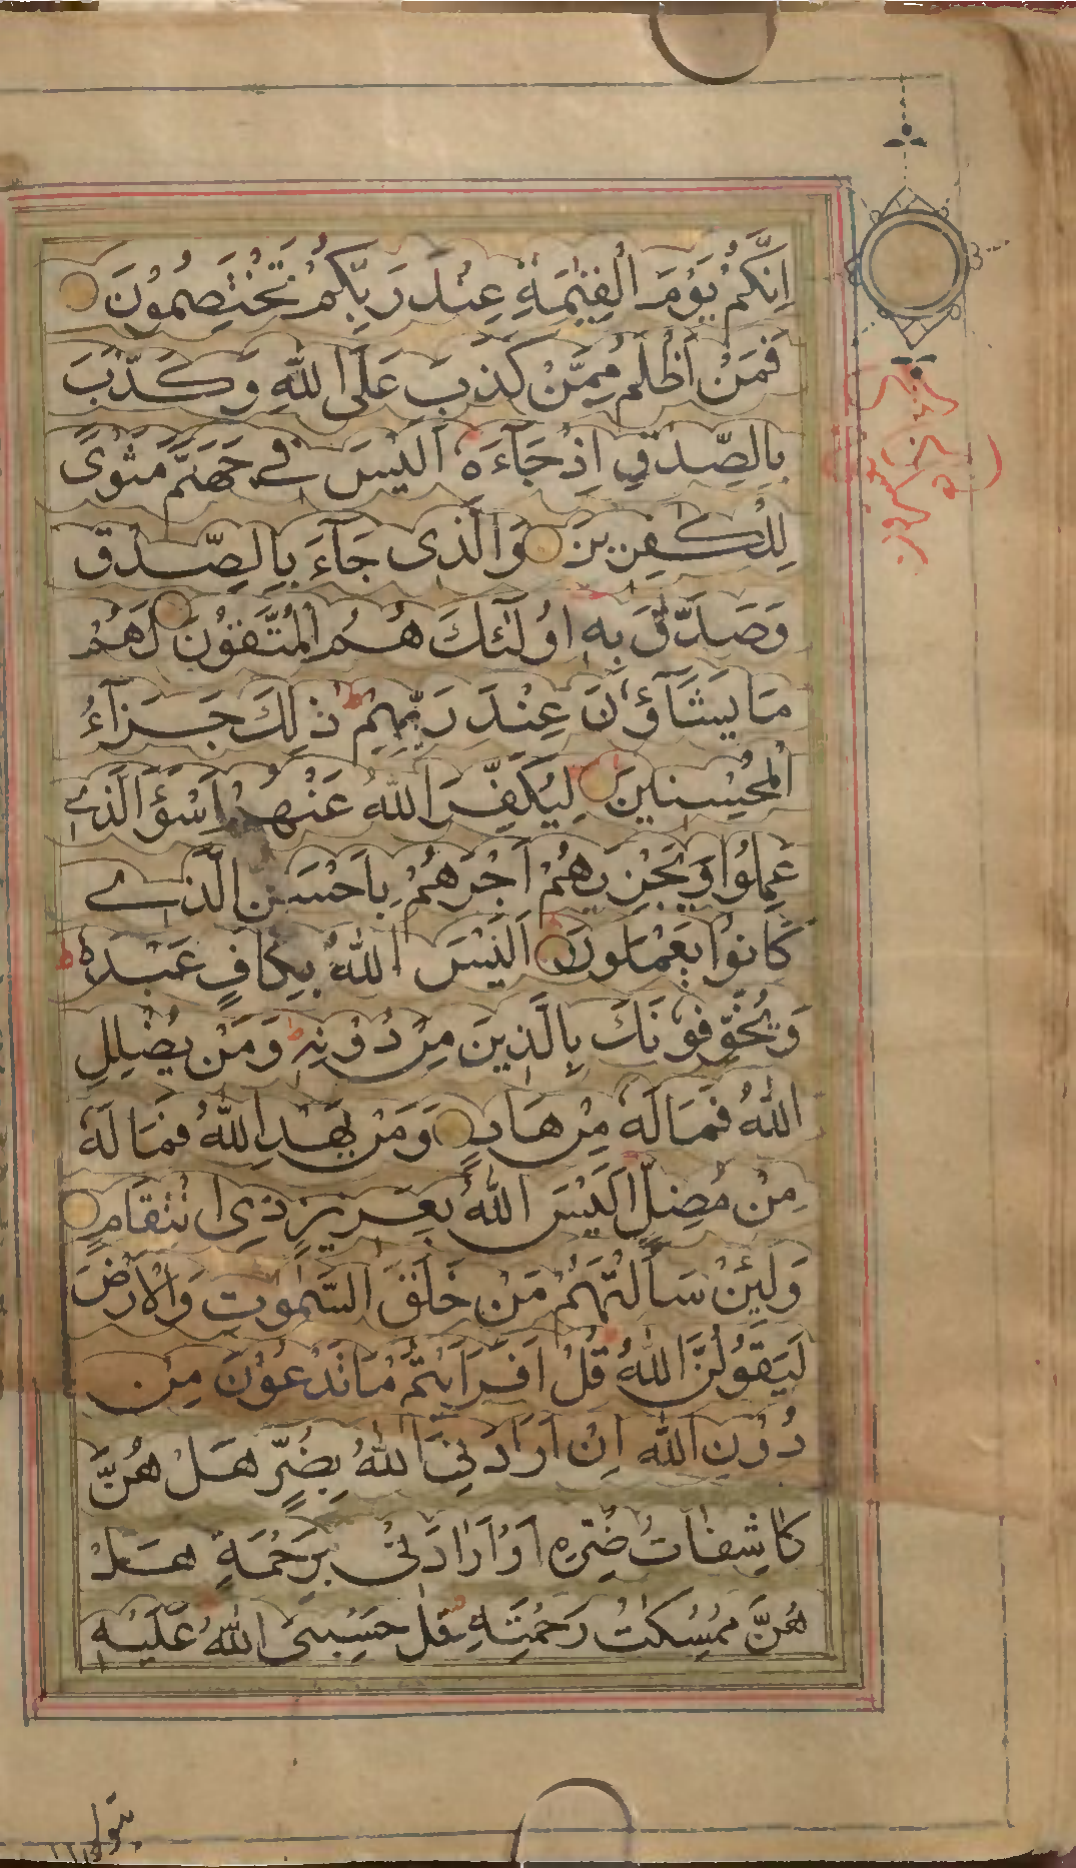 اِنَّكُمْ يَوْمَ الْقِيٰمَةِ عِنْدَ رَبِّكُمْ تَخْتَصِمُوْنَ
فَمَنْ اَظْلَمُ مِمَّنْ كَذَبَ عَلَى اللّٰهِ وَكَذَّبَ
بِالصِّدْقِ اِذْ جَآءَهٗ اَلَيْسَ فِے جَهَنَّمَ مَثْوًى
لِلْكٰفِرِيْنَ وَالَّذِى جَآءَ بِالصِّدْقِ
وَصَدَّقَ بِهٖ اُولٰٓئِكَ هُمُ الْمُتَّقُوْنَ لَهُمْ
مَا يَشَآؤُنَ عِنْدَ رَبِّهِمْ ط ذٰلِكَ جَزَآءُ
الْمُحْسِنِيْنَ لِيُكَفِّرَ اللّٰهُ عَنْهُمْ اَسْوَأَ الَّذِے
عَمِلُوْا وَيَجْزِيَهُمْ اَجْرَهُمْ بِاَحْسَنِ الَّذِے
كَانُوْا يَعْمَلُونَ اَلَيْسَ اللّٰهُ بِكَافٍ عَبْدَهٗ ط
وَيُخَوِّفُوْنَكَ بِالَّذِيْنَ مِنْ دُوْنِهٖ ط وَمَنْ يُضْلِلِ
اللّٰهُ فَمَا لَهٗ مِنْ هَادٍ وَمَنْ يَهْدِ اللّٰهُ فَمَا لَهٗ
مِنْ مُضِلٍّ اَلَيْسَ اللّٰهُ بِعَزِيْزٍ ذِى انْتِقَامٍ
وَلَئِنْ سَاَلْتَهُمْ مَنْ خَلَقَ السَّمٰوٰتِ وَالْاَرْضَ
لَيَقُوْلُنَّ اللّٰهُ قُلْ اَفَرَاَيْتُمْ مَا تَدْعُوْنَ مِنْ
دُوْنِ اللّٰهِ اِنْ اَرَادَنِىَ اللّٰهُ بِضُرٍّ هَلْ هُنَّ
كَاشِفَاتُ ضُرِّهٖ اَوْ اَرَادَنِىْ بِرَحْمَةٍ هَلْ
هُنَّ مُمْسِكٰتُ رَحْمَتِهٖ قُلْ حَسْبِىَ اللّٰهُ عَلَيْهِ